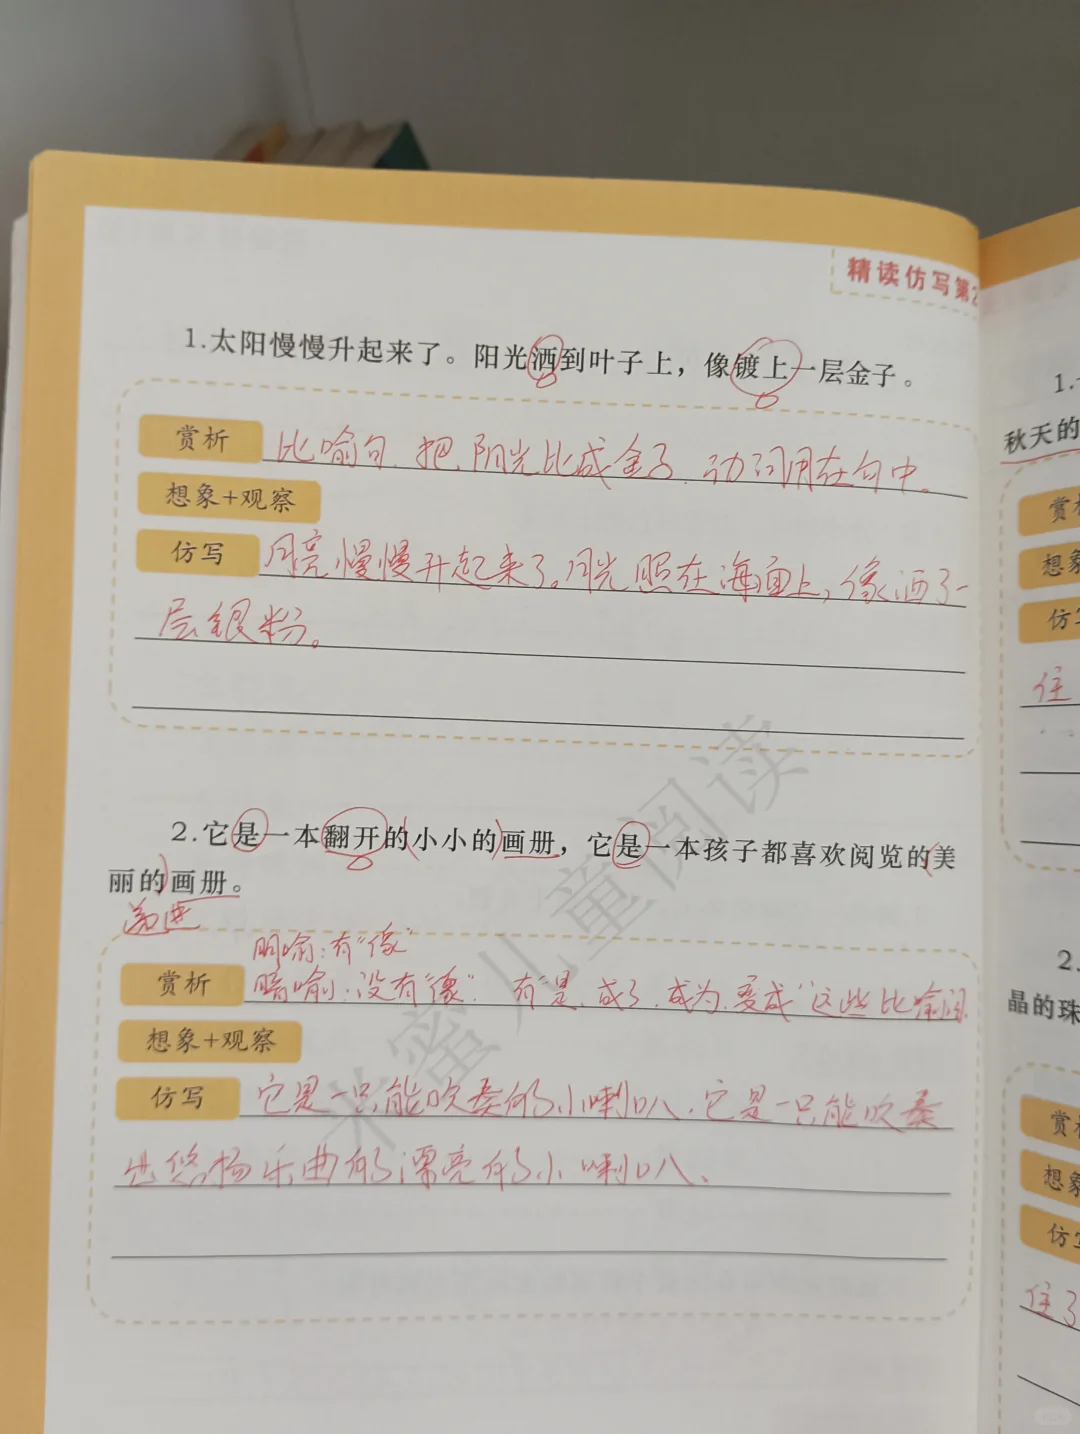 精读仿写第
1.太阳慢慢升起来了。阳光洒到叶子上，像镀上一层金子。
赏析 比喻句、把阳光比成金子、动词用在句中。
想象+观察
仿写 月亮慢慢升起来了。月光照在海面上，像洒了一
层银粉。
2.它是一本翻开的小小的画册，它是一本孩子都喜欢阅览的美
丽的画册。
明喻：有“像”
赏析 暗喻：没有“像”. 有“是、成了、成为、变成”这些比喻词
想象+观察
仿写 它是一只能吹奏的小喇叭、它是一只能吹奏
出悠扬乐曲的漂亮的小喇叭、
米蜜儿童阅读
1.
秋天的
赏
想象
仿
住
2.
晶的珠
赏
想象
仿
住了